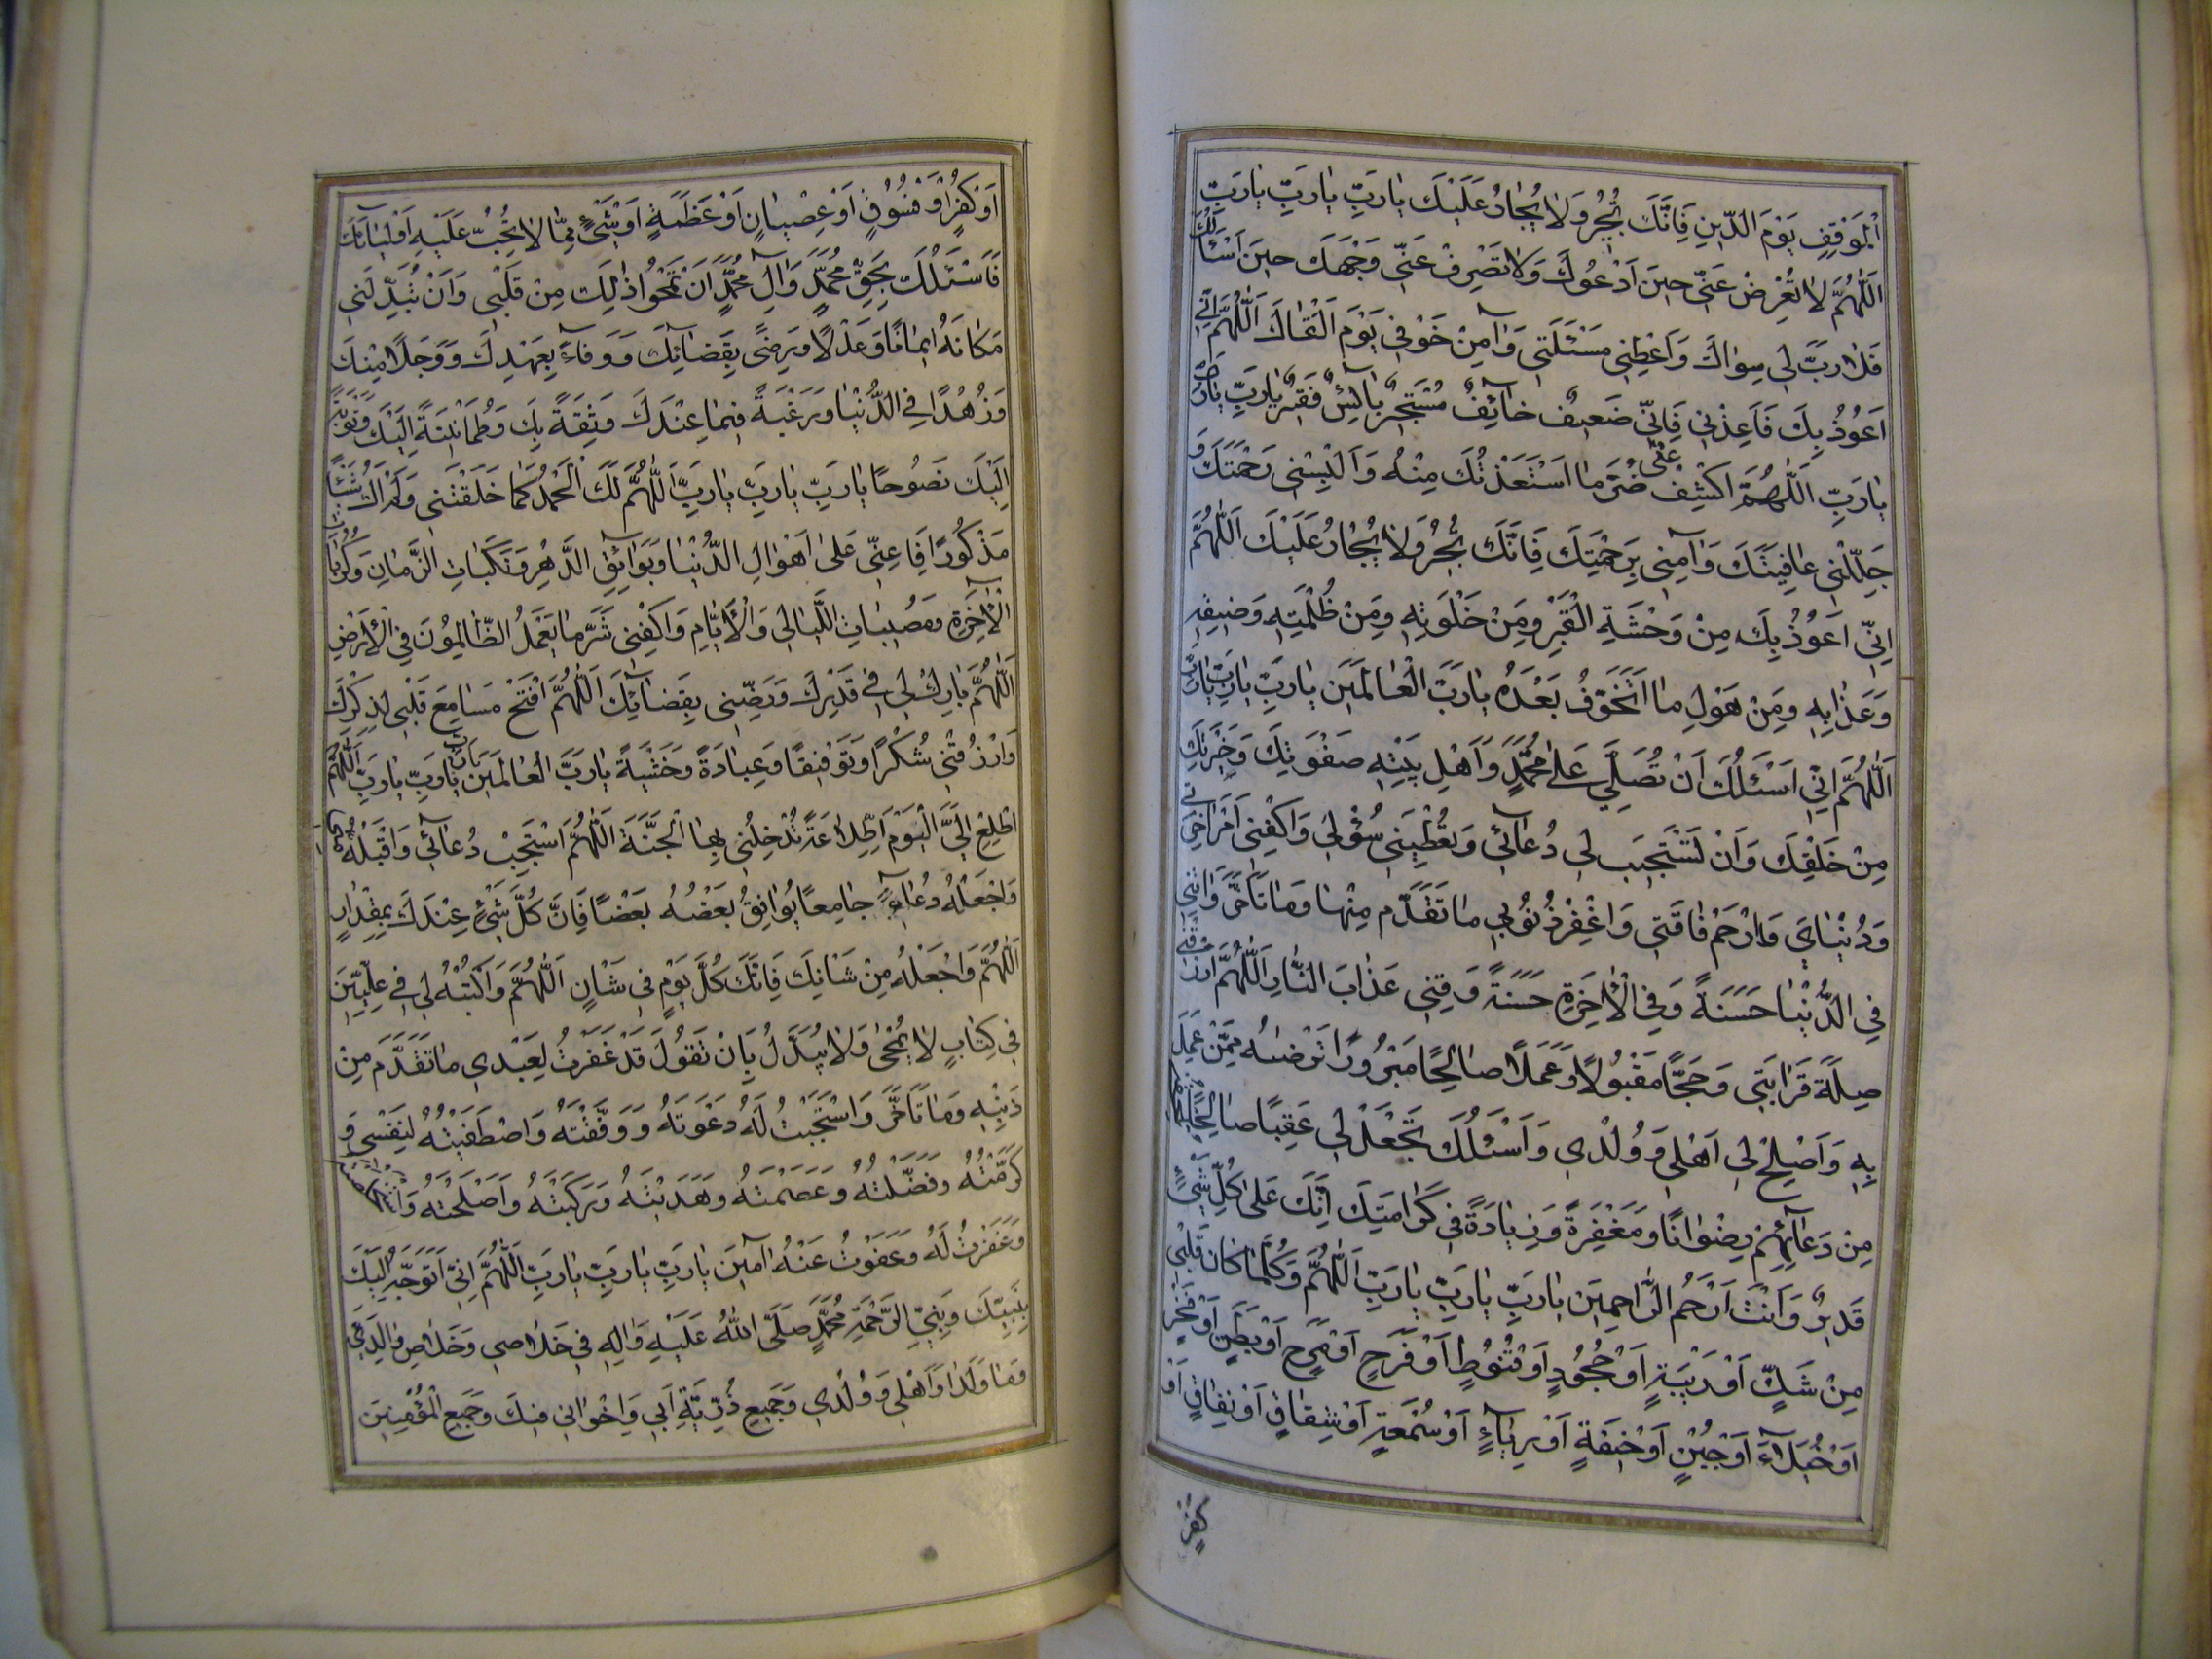 الْمَوْقِفِ يَوْمَ الدّينِ فَاِنَّكَ تُجيرُ وَلا يُجارُ عَلَيْكَ يارَبِّ يارَبِّ يارَبِّ
اَللّهُمَّ لا تُعْرِضْ عَنّي حينَ اَدْعُوكَ وَلا تَصْرِفْ عَنّي وَجْهَكَ حينَ اَسْئَلُكَ
فَلا رَبَّ لي سِواكَ وَاَعْطِني مَسْئَلَتي وَآمِنْ خَوْفي يَوْمَ اَلْقاكَ اَللّهُمَّ اِنّي
اَعُوذُ بِكَ فَاَعِذْني فَاِنّي ضَعيفٌ خائِفٌ مُسْتَجيرٌ بائِسٌ فَقيرٌ يارَبِّ يارَبِّ
يارَبِّ اَللّهُمَّ اكْشِفْ عَنّي ضُرَّ ما اسْتَعَذْتُكَ مِنْهُ وَاَلْبِسْني رَحْمَتَكَ وَ
جَلِّلْني عافِيَتَكَ وَآمِنّي بِرَحْمَتِكَ فَاِنَّكَ تُجيرُ وَلا يُجارُ عَلَيْكَ اَللّهُمَّ
اِنّي اَعُوذُ بِكَ مِنْ وَحْشَةِ الْقَبْرِ وَمِنْ خَلْوَتِهِ وَمِنْ ظُلْمَتِهِ وَضيقِهِ
وَعَذابِهِ وَمِنْ هَوْلِ ما اَتَخَوَّفُ بَعْدَهُ يارَبَّ الْعالَمينَ يارَبِّ يارَبِّ يارَبِّ
اَللّهُمَّ اِنّي اَسْئَلُكَ اَنْ تُصَلِّيَ عَلى مُحَمَّدٍ وَاَهْلِ بَيْتِهِ صَفْوَتِكَ وَخِيَرَتِكَ
مِنْ خَلْقِكَ وَاَنْ تَسْتَجيبَ لي دُعآئي وَتُعْطِيَني سُؤْلي وَاكْفِني اَمْرَ اخِرَتي
وَدُنْيايَ وَارْحَمْ فاقَتي وَاغْفِرْ ذُنُوبي ما تَقَدَّمَ مِنْها وَما تَاَخَّرَ وَاتِني
فِي الدُّنْيا حَسَنَةً وَفِي الْاخِرَةِ حَسَنَةً وَقِني عَذابَ النّارِ اَللّهُمَّ ارْزُقْني
صِلَةَ قَرابَتي وَحَجًّا مَقْبُولًا وَعَمَلًا صالِحًا مَبْرُورًا تَرْضاهُ مِمَّنْ عَمِلَ
بِهِ وَاَصْلِحْ لي اَهْلي وَوُلْدي وَاَسْئَلُكَ تَجْعَلْ لي عَقِبًا صالِحًا
مِنْ دُعآئِهِمْ رِضْوانًا وَمَغْفِرَةً وَزِيادَةً في كَرامَتِكَ اِنَّكَ عَلى كُلِّ شَيْءٍ
قَديرٌ وَاَنْتَ اَرْحَمُ الرّاحِمينَ يارَبِّ يارَبِّ يارَبِّ اَللّهُمَّ وَكُلَّما كانَ قَلْبي
مِنْ شَكٍّ اَوْ رَيْبَةٍ اَوْ جُحُودٍ اَوْ قُنُوطٍ اَوْ فَرَحٍ اَوْ مَرَحٍ اَوْ بَطَرٍ اَوْ فَخْرٍ
اَوْ خُيَلآءَ اَوْ جُبْنٍ اَوْ خيفَةٍ اَوْ رِيآءٍ اَوْ سُمْعَةٍ اَوْ شِقاقٍ اَوْ نِفاقٍ اَوْ
كُفْرٍ
اَوْ كُفْرٍ اَوْ فُسُوقٍ اَوْ عِصْيانٍ اَوْ عَظَمَةٍ اَوْ شَيْءٍ مِمّا لا تُحِبُّ عَلَيْهِ اَوْلِيآئَكَ
فَاَسْئَلُكَ بِحَقِّ مُحَمَّدٍ وَالِ مُحَمَّدٍ اَنْ تَمْحُوَ اذلِكَ مِنْ قَلْبي وَاَنْ تُبَدِّلَني
مَكانَهُ ايمانًا وَعَدْلًا وَرِضًى بِقَضآئِكَ وَوَفآءً بِعَهْدِكَ وَوَجَلًا مِنْكَ
وَزُهْدًا فِي الدُّنْيا وَرَغْبَةً فيما عِنْدَكَ وَثِقَةً بِكَ وَطُمَاْنينَةً اِلَيْكَ وَتَوْبَةً
اِلَيْكَ نَصُوحًا يارَبِّ يارَبِّ يارَبِّ اَللّهُمَّ لَكَ الْحَمْدُ كَما خَلَقْتَني وَلَمْ اَكُ شَيْئًا
مَذْكُورًا فَاَعِنّي عَلى اَهْوالِ الدُّنْيا وَبَوآئِقِ الدَّهْرِ وَنَكَباتِ الزَّمانِ وَكُرُباتِ
الْاخِرَةِ وَمُصيباتِ اللَّيالي وَالْاَيّامِ وَاكْفِني شَرَّ ما يَعْمَلُ الظّالِمُونَ فِي الْاَرْضِ
اَللّهُمَّ بارِكْ لي في قَدَرِكَ وَرَضِّني بِقَضآئِكَ اَللّهُمَّ افْتَحْ مَسامِعَ قَلْبي لِذِكْرِكَ
وَارْزُقْني شُكْرًا وَتَوْفيقًا وَعِبادَةً وَخَشْيَةً يارَبَّ الْعالَمينَ يارَبِّ يارَبِّ يارَبِّ اَللّهُمَّ
اطَّلِعْ اِلَيَّ الْيَوْمَ اطِّلاعَةً تُدْخِلُني بِها الْجَنَّةَ اَللّهُمَّ اسْتَجِبْ دُعآئي وَاقْبَلْهُ
وَاجْعَلْهُ دُعآءً جامِعًا يُوافِقُ بَعْضُهُ بَعْضًا فَاِنَّ كُلَّ شَيْءٍ عِنْدَكَ بِمِقْدارٍ
اَللّهُمَّ وَاجْعَلْهُ مِنْ شَانِكَ فَاِنَّكَ كُلَّ يَوْمٍ في شَانٍ اَللّهُمَّ وَاكْتُبْهُ لي في عِلِّيّينَ
في كِتابٍ لا يُمْحى وَلا يُبَدَّلُ بِاَنْ تَقُولَ قَدْ غَفَرْتُ لِعَبْدي ما تَقَدَّمَ مِنْ
ذَنْبِهِ وَما تَاَخَّرَ وَاسْتَجَبْتُ لَهُ دَعْوَتَهُ وَوَفَّقْتُهُ وَاصْطَفَيْتُهُ لِنَفْسي وَ
كَرَّمْتُهُ وَفَضَّلْتُهُ وَعَصَمْتُهُ وَهَدَيْتُهُ وَزَكَّيْتُهُ وَاَصْلَحْتُهُ
وَغَفَرْتُ لَهُ وَعَفَوْتُ عَنْهُ آمينَ يارَبِّ يارَبِّ يارَبِّ اَللّهُمَّ اِنّي اَتَوَجَّهُ اِلَيْكَ
بِنَبِيِّكَ وَنَبِيِّ الرَّحْمَةِ مُحَمَّدٍ صَلَّى اللّهُ عَلَيْهِ وَالِهِ في خَلاصي وَخَلاصِ والِدَيَّ
وَما وَلَدا وَاَهْلي وَوُلْدي وَجَميعِ ذُرِّيَّةِ اَبي وَاِخْواني فيكَ وَجَميعِ الْمُؤْمِنينَ